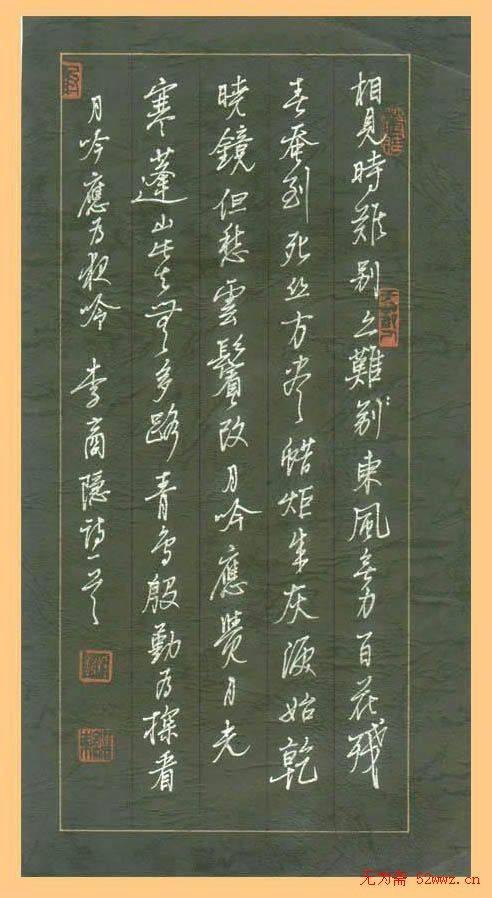 相見時难别亦難别東風無力百花残
春蚕到死丝方尽蜡炬成灰淚始乾
曉鏡但愁雲鬢改月吟應覺月光
寒蓬山此去無多路青鳥殷勤为探看
月吟應为夜吟 李商隐詩一首
无为斋 52wwz.cn